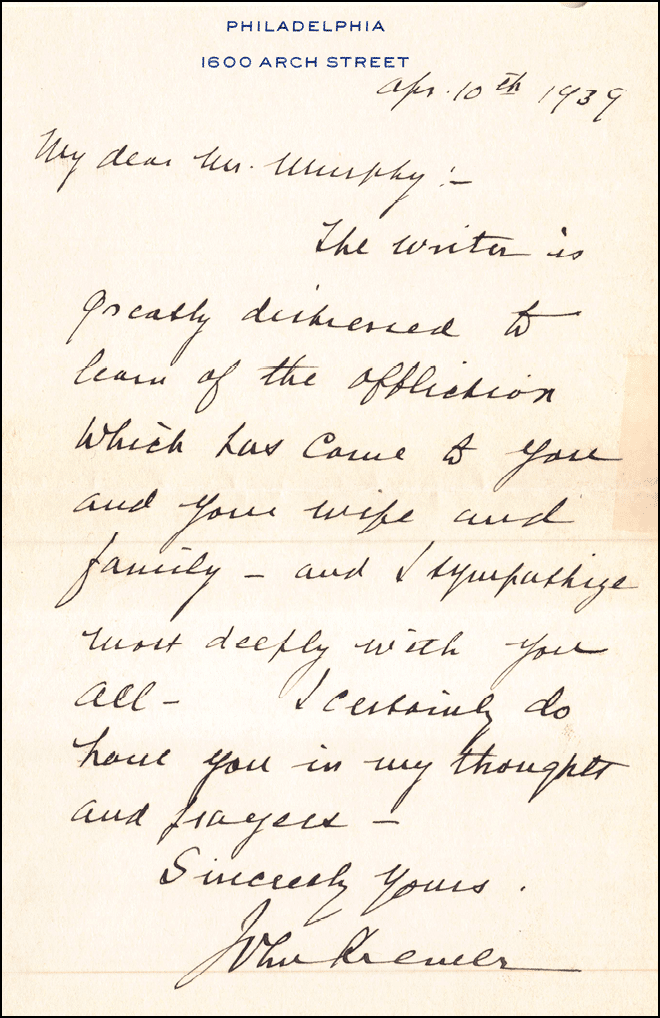 PHILADELPHIA
1600 ARCH STREET
Apr. 10th 1939
My dear Mr. Murphy :-
The writer is
greatly distressed to
learn of the affliction
which has come to you
and your wife and
family - and I sympathize
most deeply with you
all - I certainly do
have you in my thoughts
and prayers -
Sincerely yours.
John Kremer